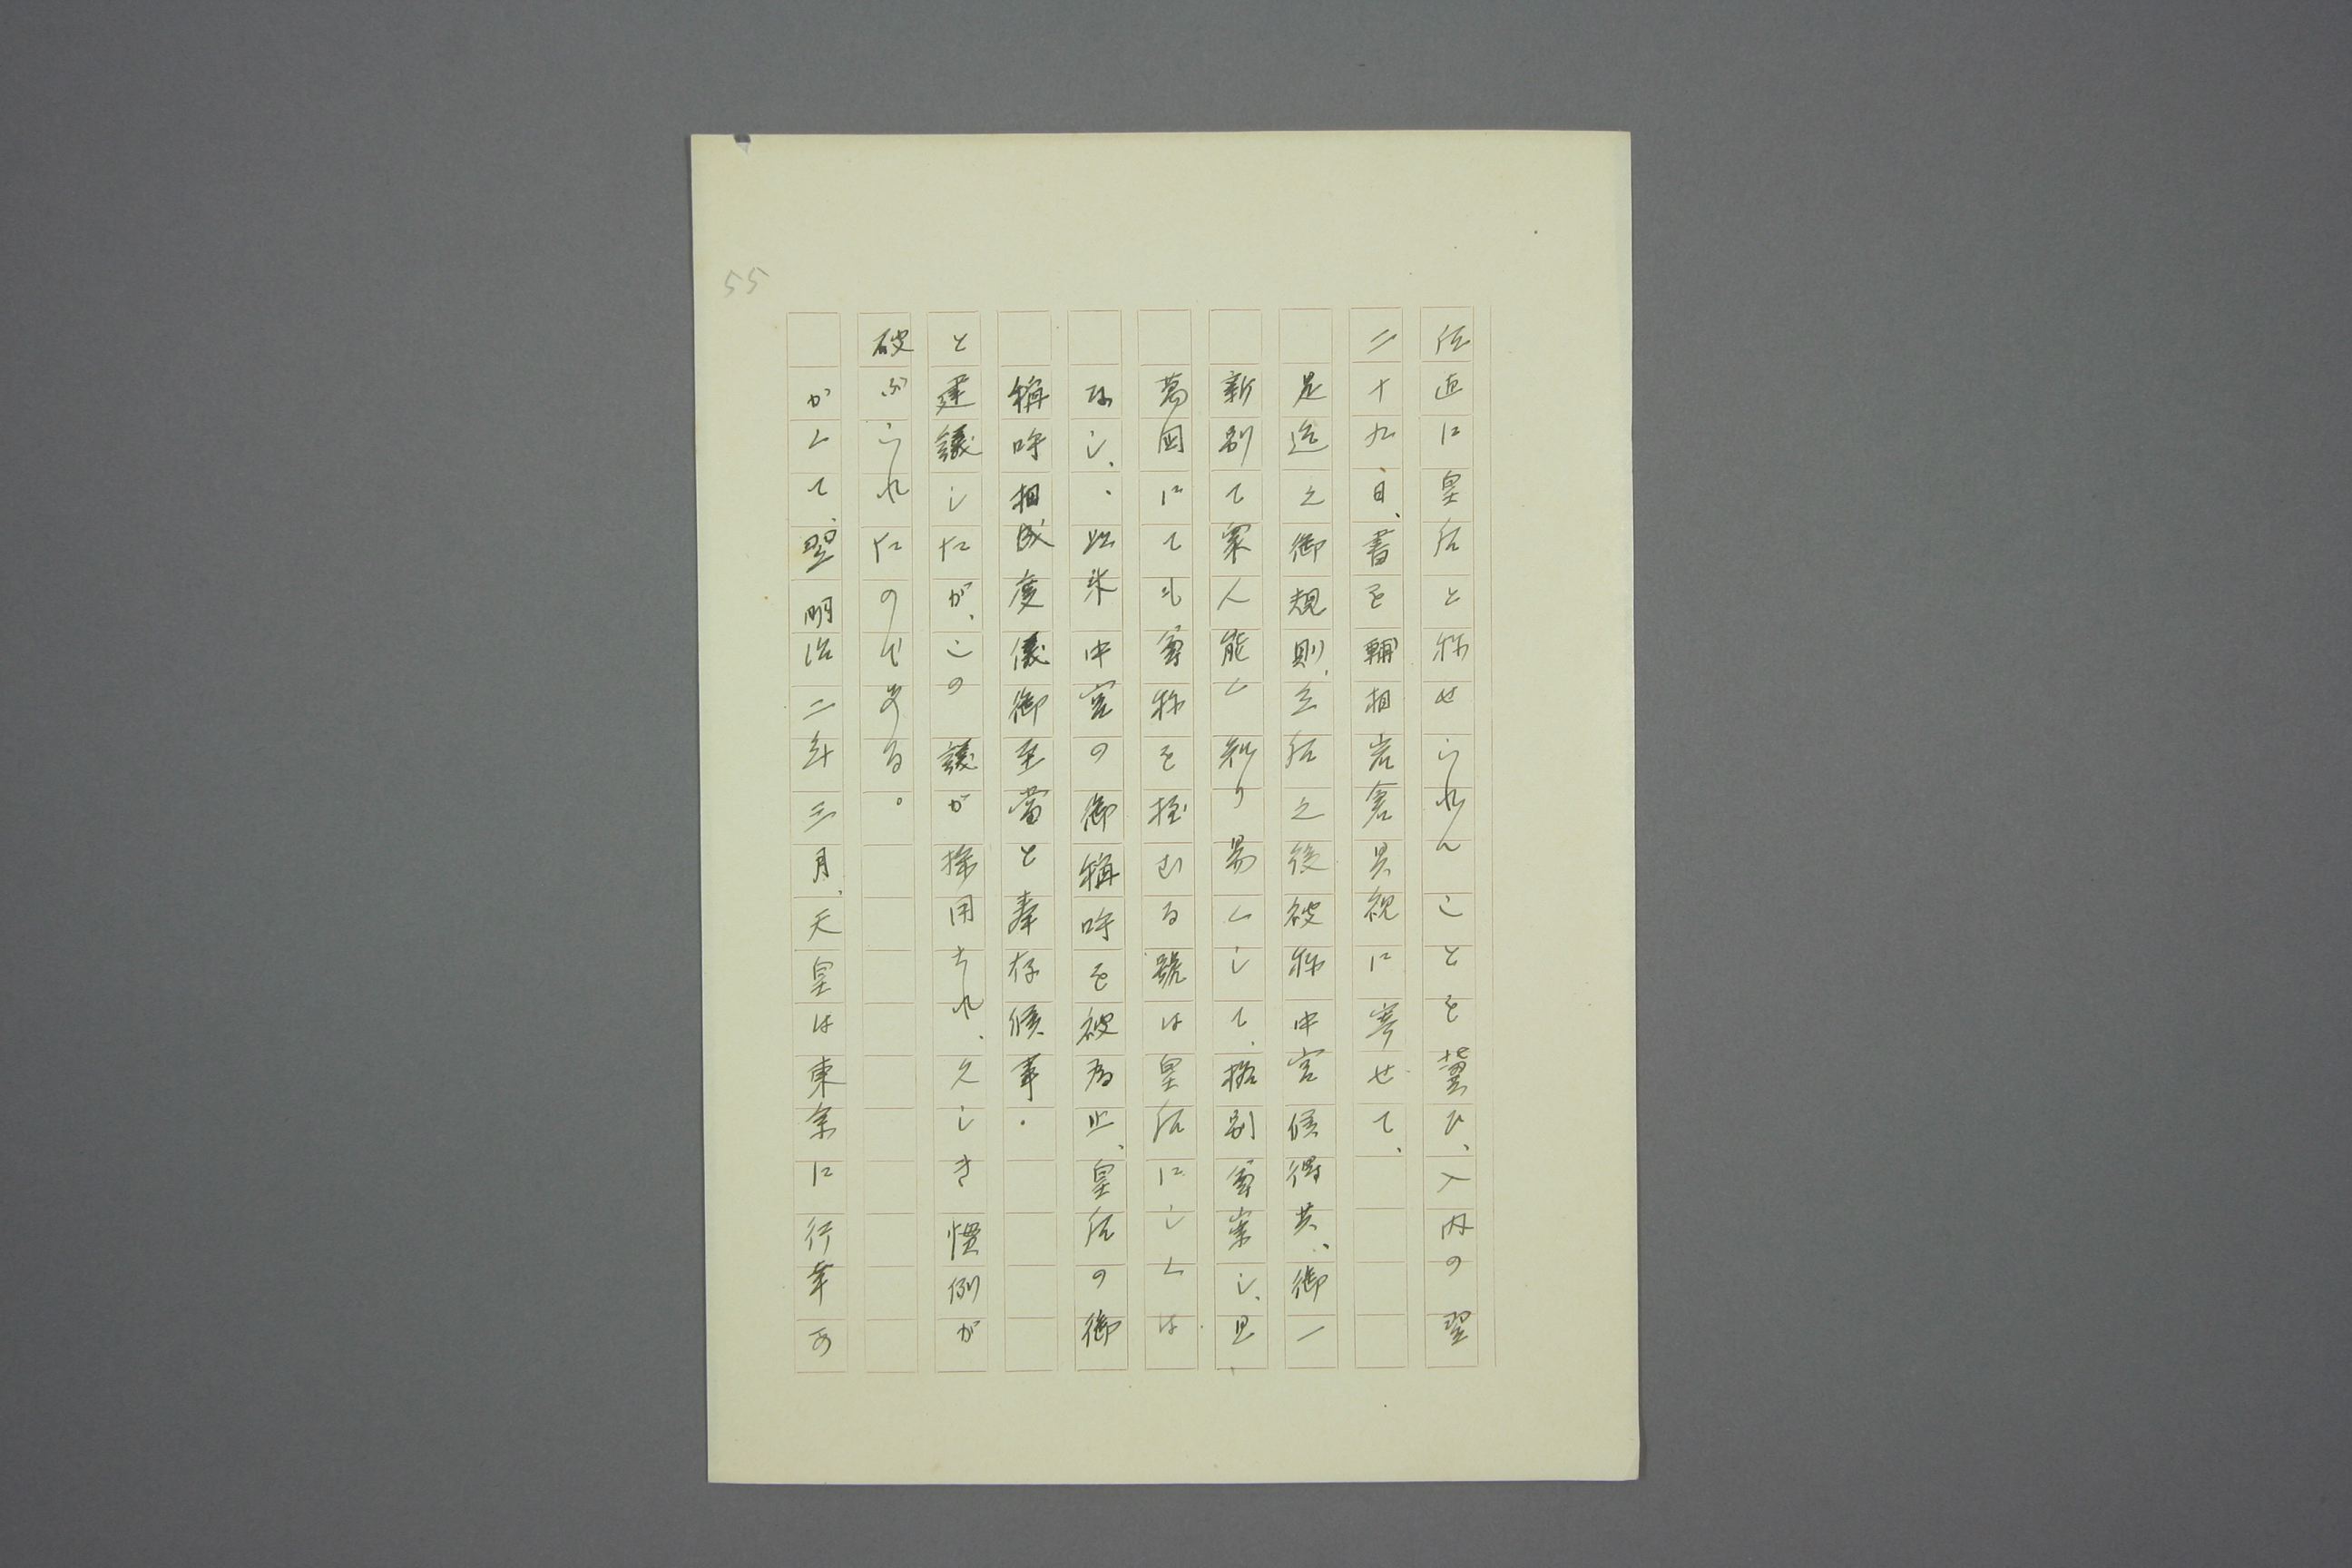 55
后直に皇后と称せられんことを冀ひ、入内の翌
二十九日、書を輔相岩倉具視に寄せて、
是迄之御規則、立后之後被称中宮候得共、御一
新別て衆人能く判り易くして、格別尊崇し、且、
萬国にても尊称を抂むる號は皇后にしくは
なし、此来中宮の御稱呼を被為止、皇后の御
稱呼相成度儀御至當と奉存候事。
と建議したが、この議が採用され、久しき慣例が
破ぶられたのである。
かくて、翌明治二年三月、天皇は東京に行幸あ